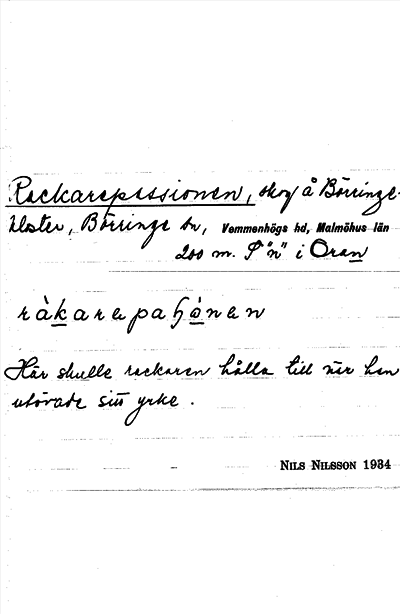 Rackarepassionen, skog å Börringe-
kloster, Börringe sn, Vemmenhögs hd, Malmöhus län
200 m. S "n" i Oran
ràkarepaɧònen
Här skulle rackaren hålla till när han
utövade sitt yrke.
NILS NILSSON 1934